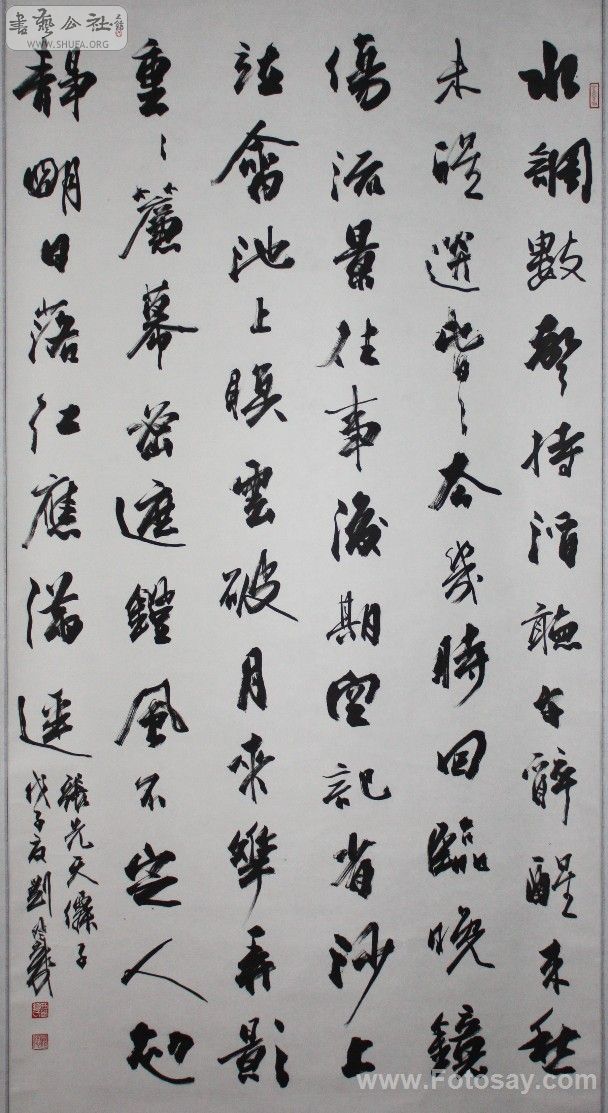 書藝公社
WWW.SHUFA.ORG
水調數聲持酒聽午醉醒來愁
未醒送旾々去幾時回臨晚鏡
傷流景往事後期空記省沙上
竝禽池上暝雲破月來華弄影
重々簾幕密遮鐙風不定人初
靜明日落紅應滿逕
張先天僊子
戊子夏劉
www.Fotosay.com